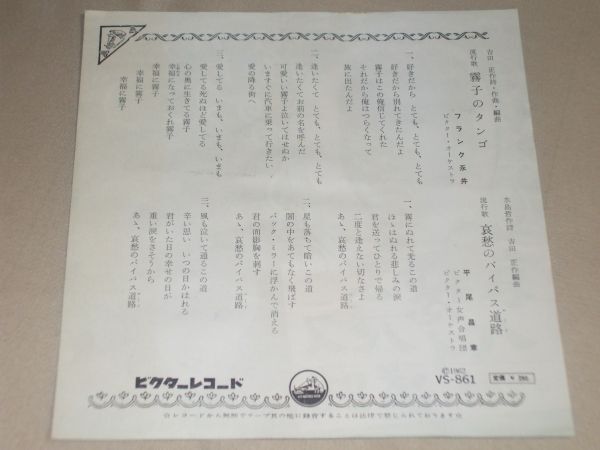 吉田 正作詩・作曲・編曲
流行歌 霧子のタンゴ
フランク永井
ビクター・オーケストラ
一、好きだから とても、とても、とても
好きだから別れてきたんだよ
霧子はこの俺信じてくれた
それだから俺はつらくなって
旅に出たんだよ
二、逢いたくて とても、とても、とても
逢いたくてお前の名を呼んだ
可愛いい霧子よ泣いてはせぬか
いますぐに汽車に乗って行きたい
愛の降る街へ
三、愛してる いまも、いまも、いまも
愛してる死ぬほど愛してる
心の奥に生きてる霧子
幸福になっておくれ霧子
幸福に霧子
幸福に霧子
幸福に霧子
水島哲作詩 吉田 正作編曲
流行歌 哀愁のバイパス道路
平尾昌章
ビクター女声合唱団
ビクター・オーケストラ
一、霧にぬれて光るこの道
ほゝはぬれる悲しみの涙
君を送ってひとりで帰る
二度と逢えない切なさよ
あゝ、哀愁のバイパス道路
二、星も落ちて暗いこの道
闇の中をあてもなく飛ばす
バック・ミラーに浮かんで消える
君の面影胸を刺す
あゝ、哀愁のバイパス道路
三、風も泣いて通るこの道
辛い思い いつの日かはれる
君がいた日の幸せの日が
重い涙をさそうから
あゝ、哀愁のバイパス道路
ビクターレコード
Ⓒ1962
VS-861
定価 ¥ 290.
☆レコードから無断でテープ其の他に録音することは法律で禁じられております☆